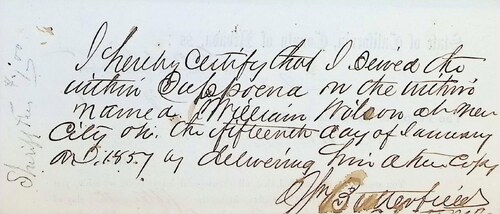 I hereby certify that I Served the
within Suppoena on the within
named William Wilson at Nev
City on the fifteenth day of January
A.D. 1857 by delivering him a true Copy
Wm Butterfield